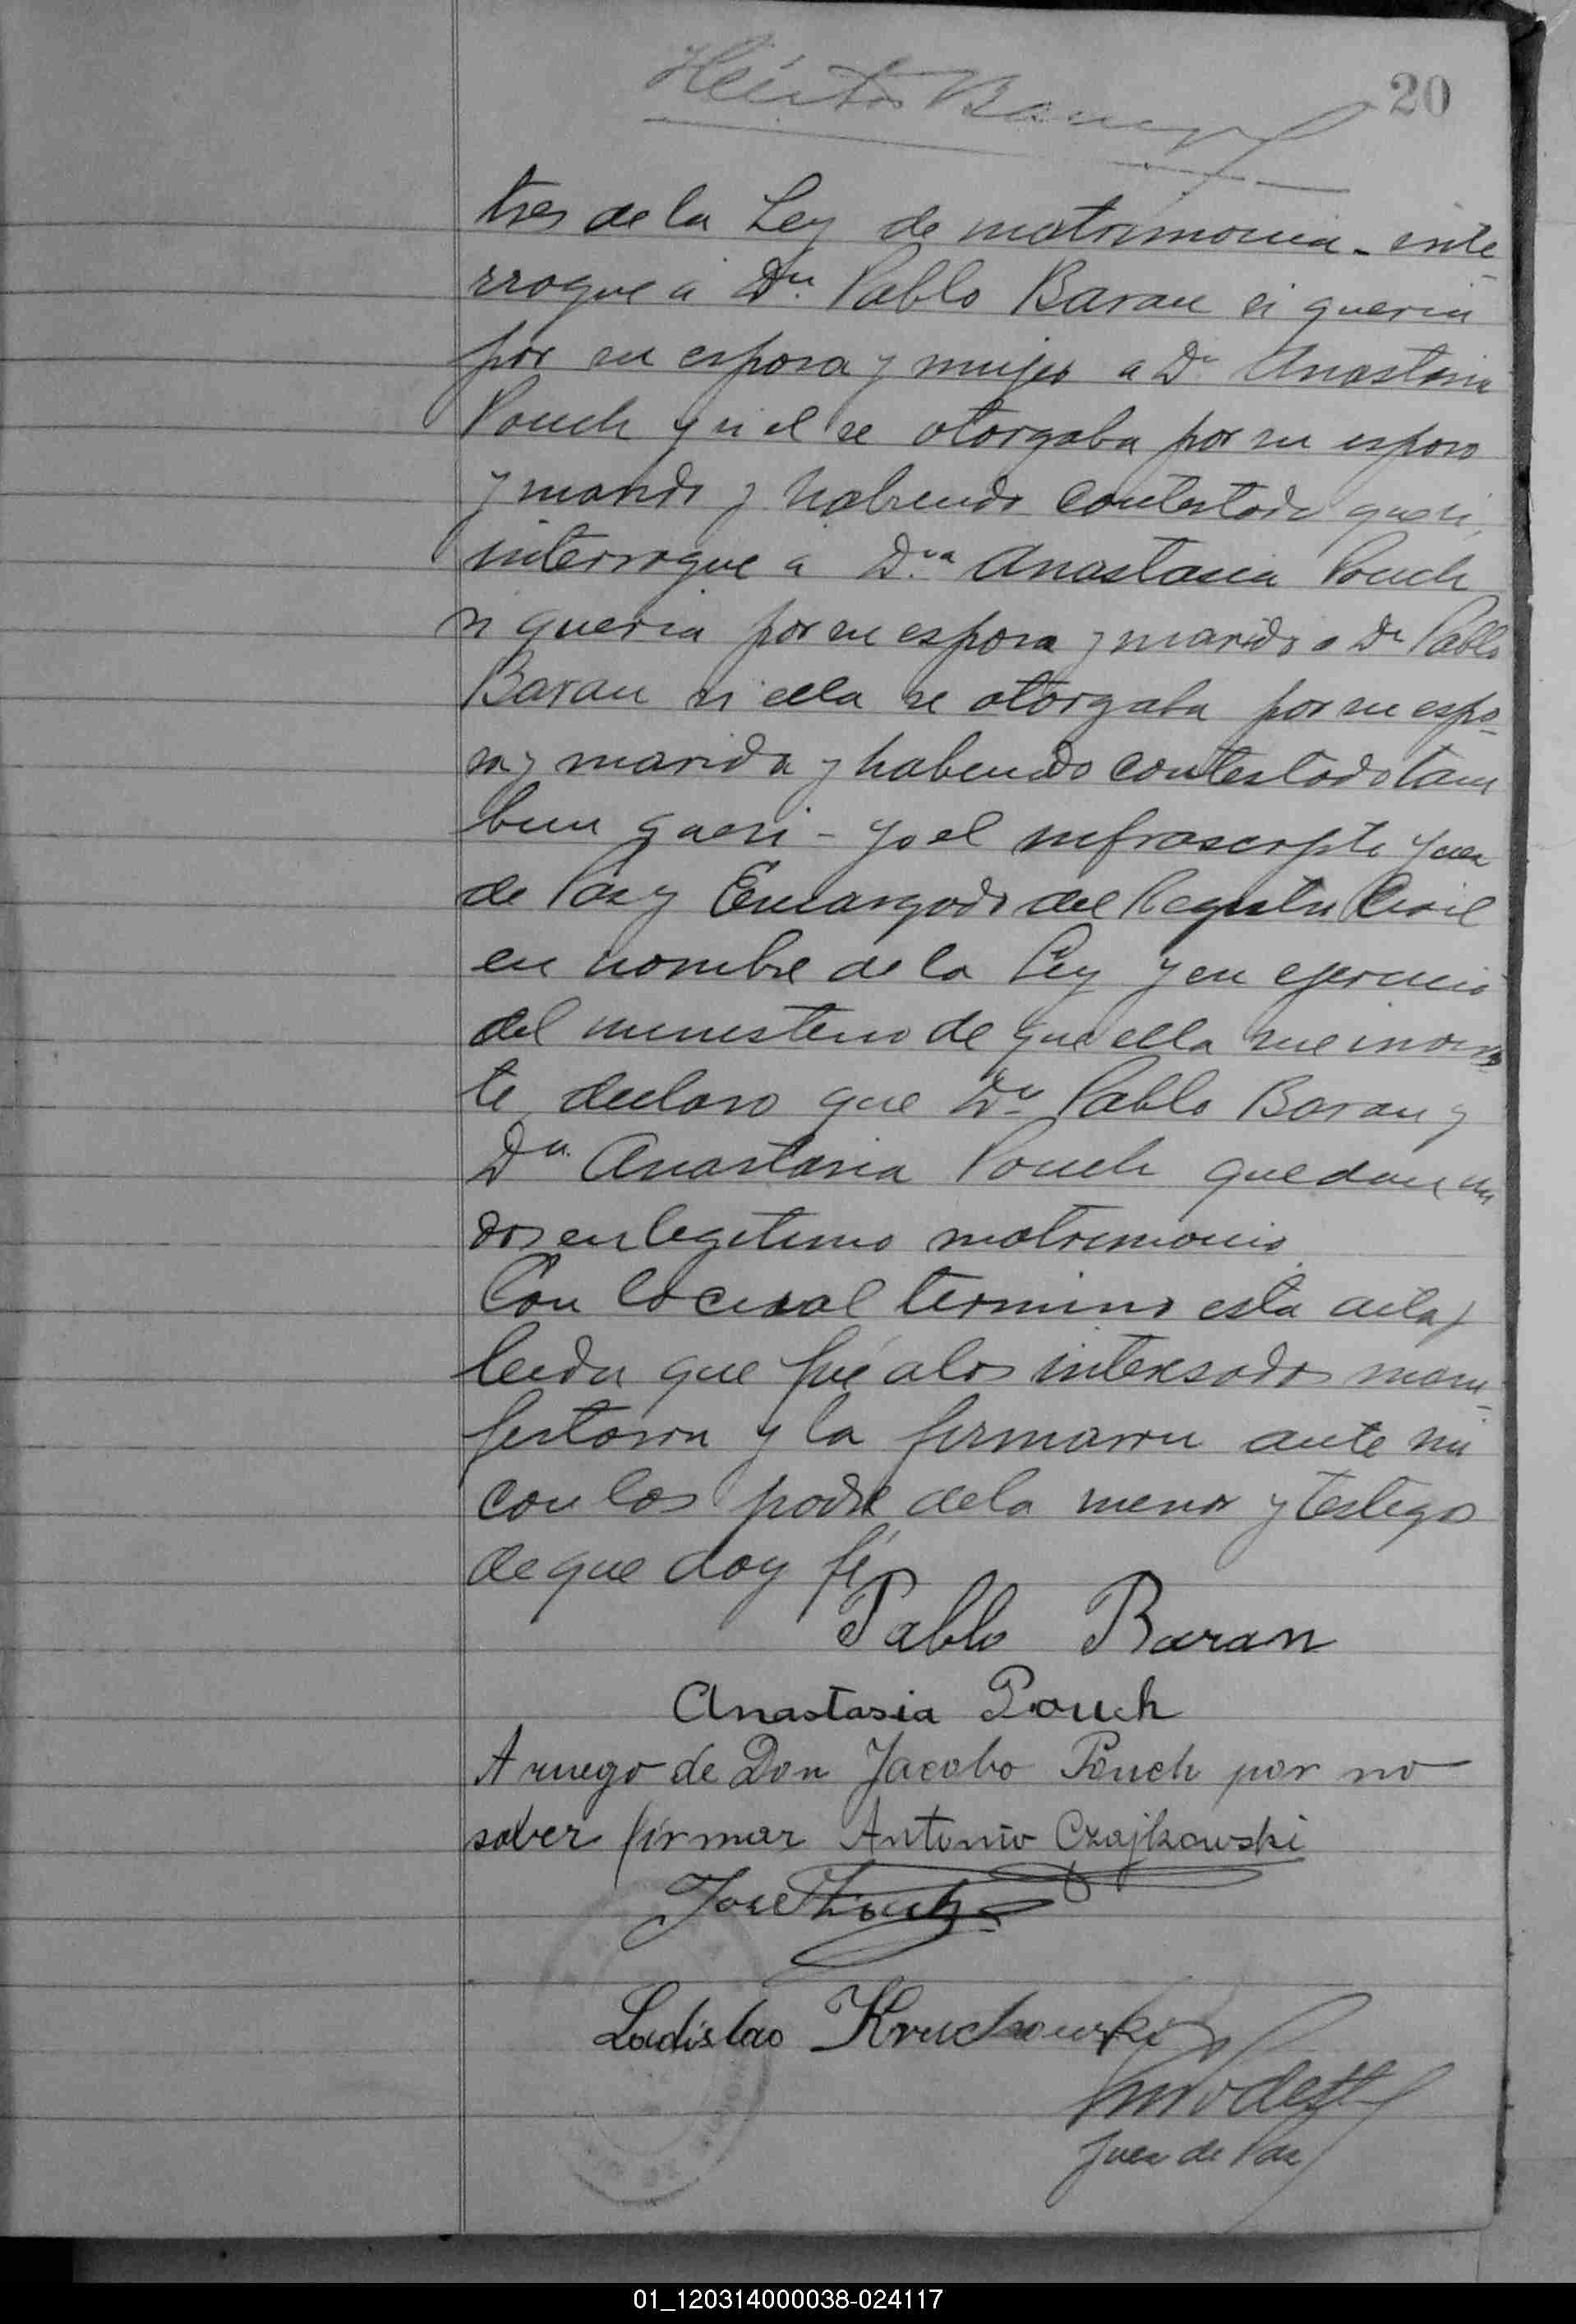 20
tres de la Ley de matrimonia - inte
rrogue a Dn. Pablo Baran si queria
por su esposa y mujer a Da Anastasia
Pouch y si el se otorgaba por su esposo
y marido y habiendo contestado que si,
interrogue a Dna Anastasia Pouch
si queria por su esposo y marido a Dn Pablo
Baran si ella se otorgaba por su espo-
sa y marida y habiendo contestado tam
bien que si - yo el infrascripto Juez
de Paz y Encargado del Registro Civil
en nombre de la Ley y en ejercicio
del ministerio de que ella me invis
te, declaro que Dn Pablo Baran y
Da. Anastasia Pouch quedan uni
dos en legitimo matrimonio
Con lo cual termino esta acta y
leida que fué a los interesados mani-
festaron y la firmaron ante mi
con los padre de la menor y testigos
de que doy fé
Pablo Baran
Anastasia Pouch
A ruego de Don Jacobo Pouch por no
saber firmar Antonio Czajkowski
Jose
Ladislao Kruchowski
Juez de Paz
01_120314000038-024117